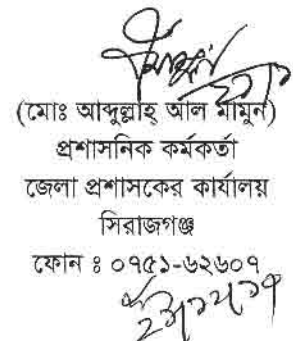 (মোঃ আব্দুল্লাহ আল মামুন)
প্রশাসনিক কর্মকর্তা
জেলা প্রশাসকের কার্যালয়
সিরাজগঞ্জ
ফোন ঃ ০৭৫১-৬২৬০৭